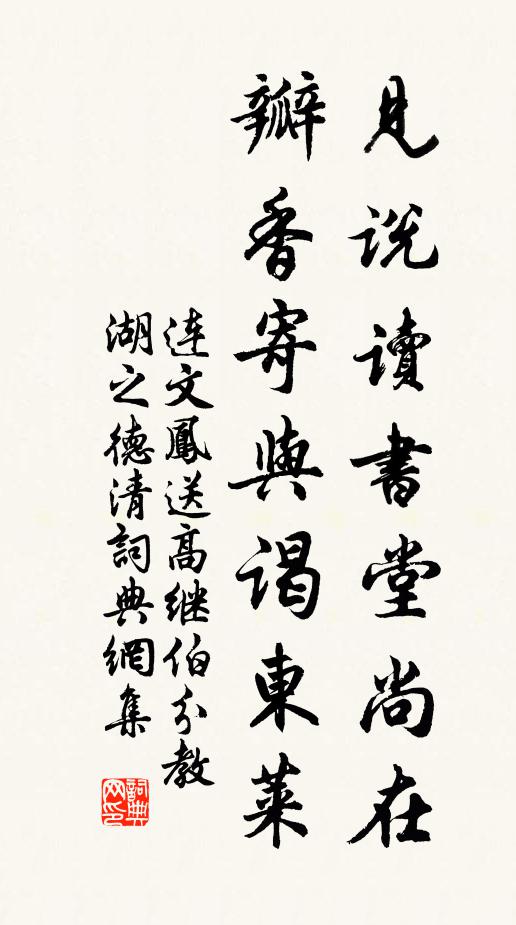 見説讀書堂尚在
瓣香寄與谒東萊
連文鳳送高继伯分教
湖之德清詞典網集
詞典网印